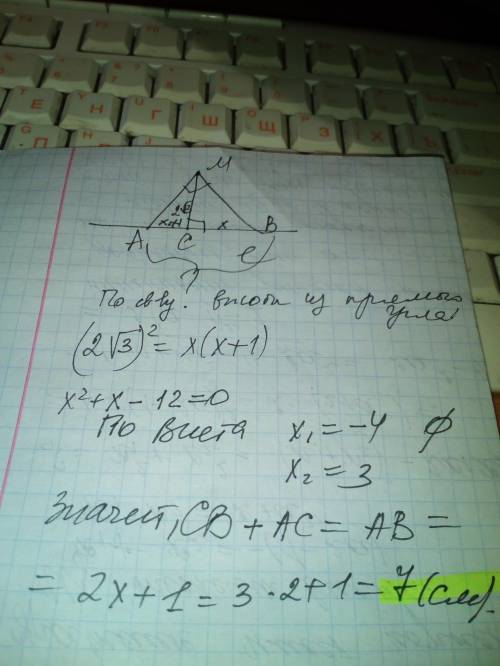 Т Е Н Г Ш Щ З Х Ъ
M
2√3
x+1 x
A C B
e
?
По св-ву. высоты из прямого
угла
(2√3)² = x(x+1)
x²+x-12=0
По Виета x₁ = -4 ∅
x₂ = 3
Значет, CB + AC = AB =
= 2x+1 = 3·2+1 = 7(см).